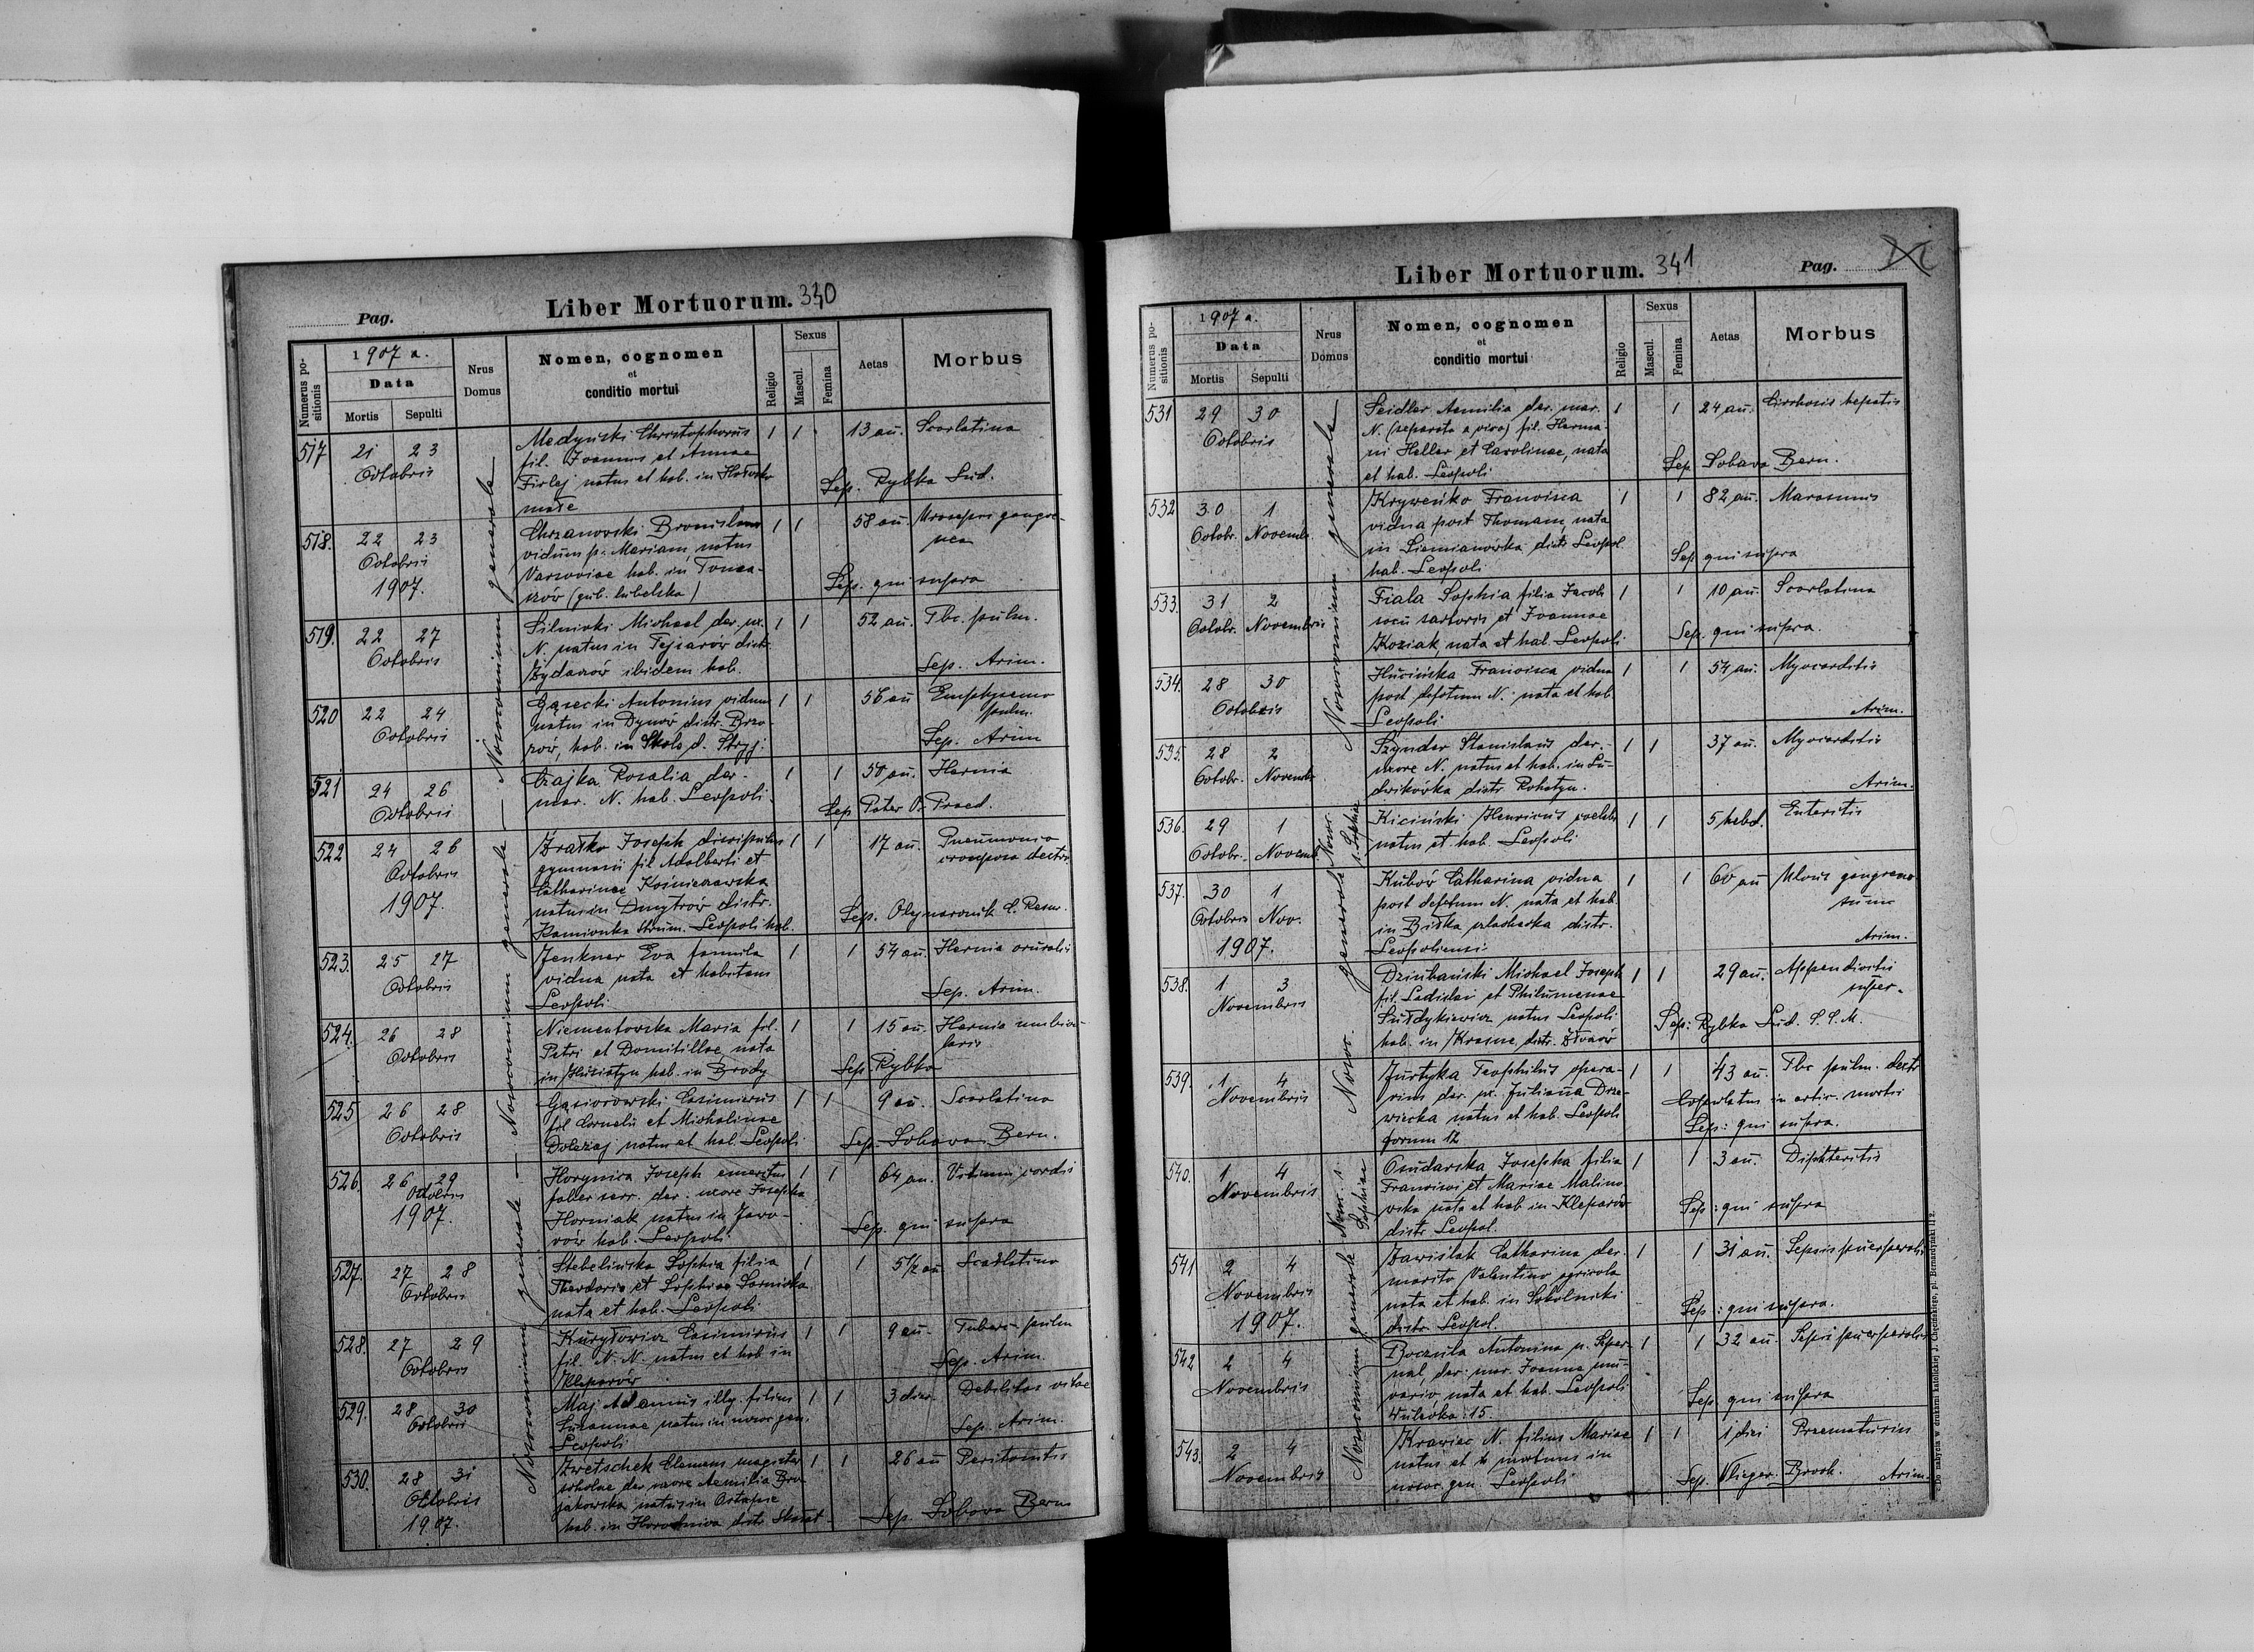 Pag.
Liber Mortuorum. 340
Numerus positionis
1907 a.
Data
Mortis
Sepulti
Nrus Domus
Nomen, cognomen
et
conditio mortui
Religio
Sexus
Mascul.
Femina
Aetas
Morbus
Nosocomium generale — Nosocomium generale — Nosocomium generale
517 21 23 Medyński Christophorus 1 1 13 an. Scarlatina
Octobris fil. Joannis et Annae
Firlej natus et hab. in Hołosko Sep. Rybka Lud.
małe
518. 22 23 Chrzanowski Bronislaus 1 1 58 an.
Octobris viduus p. Mariam, natus
1907. Varsoviae hab. in Sep. qui supra
(gub. lubelska)
519. 22 27 Silnicki Michael der. ux. 1 1 52 an. Tbc. pulm.
Octobris N. natus in distr.
Żydaczów ibidem hab. Sep. Arim.
520 22 24 Gąsecki Antonius viduus 1 1 56 an Emphysema
Octobris natus in Dynów distr. Brzo- pulm.
zów, hab. in Skole d. Stryj. Sep. Arim
521 24 26 Czajka Rosalia der. 1 1 50 an. Hernia
Octobris mar. N. hab. Leopoli. Sep Pater O. Praed.
522 24 26 Żratko Joseph discipulus 1 1 17 an. Pneumonia
Octobris gymnasii fil Adalberti et crouposa dextra
1907. Catharinae
natus in Dmytrów distr. Sep. C. Resur.
Kamionka Strum. Leopoli hab.
523. 25 27 Jenkner Eva famula 1 1 54 an. Hernia cruralis
Octobris vidua nata et habitans
Leopoli Sep. Arim.
524. 26 28 Niementowska Maria fil. 1 1 15 an. Hernia umbili-
Octobris Petri et Domitillae nata caris
in Husiatyn hab. in Brody Sep. Rybka
525 26 28 Gąsiorowski Casimirus 1 1 9 an. Scarlatina
Octobris fil Cornelii et Michalinae
Doležaj natus et hab. Leopoli Sep. Sobava Bern.
526. 26 29 Horynica Joseph emeritus 1 1 64 an. Vitium cordis
Octobris faller serr. der. uxore Josepha
1907. Horniak natus in Jawo- Sep. qui supra
rów hab. Leopoli
527. 27 28 Stebelińska Sophia filia 1 1 5 1/2 an Scarlatina
Octobris Theodoris et Sophiae
nata et hab. Leopoli
528. 27 29 Kuryłowicz Casimirus 1 1 9 an. Tuberc. pulm
Octobris fil. N. N. natus et hab in Sep. Arim.
Kleparów
529. 28 30 Maj Adamus illg. filius 1 1 3 dier. Debilitas vitae
Octobris Susannae natus in nosoc gen. Sep. Arim.
Leopoli
530. 28 31 Zwetschek Clemens magister 1 1 26 an Peritonitis
Octobris scholae der uxore Aemilia
1907. natus in Ostapie
hab. in Horodnica distr Skałat Sep. Sobova Bern
Liber Mortuorum. 341
Pag.
Numerus positionis
1907 a.
Data
Mortis
Sepulti
Nrus Domus
Nomen, cognomen
et
conditio mortui
Religio
Sexus
Mascul.
Femina
Aetas
Morbus
Nosocomium generale
Nosoc. generale Nosoc. s. Sophiae
Nosocomium generale Nosoc. s. Sophiae
531 29 30 Seidler Aemilia der. mar. 1 1 24 an. Cirrhosis hepatis
Octobris N. (separata a viro) fil. Herma-
ni Heller et Carolinae, nata Sep. Sobava Bern.
et hab. Leopoli
532 30 1 Kryweńko Francisca 1 1 82 an. Marasmus
Octobr. Novembr. vidua post Thomam, nata
in Siemianówka distr Leopol. Sep. qui supra
hab. Leopoli
533. 31 2 Fiala Sophia filia Jacobi 1 1 10 an. Scarlatina
Octobr. Novembris socii sartoris et Joannae
Koziak nata et hab. Leopoli Sep. qui supra.
534. 28 30 Hucińska Francisca vidua 1 1 54 an. Myocarditis
Octobris post defctum N. nata et hab.
Leopoli Arim.
535. 28 2 Szynder Stanislaus der. 1 1 37 an. Myocarditis
Octobr. Novembr. uxore N. natus et hab. in Lu-
dwikówka distr Rohatyn. Arim.
536. 29 1 Kiciński Henricus coelebs 1 1 5 hebd. Enteritis
Octobr. Novemb. natus et hab. Leopoli
537. 30 1 Kubów Catharina vidua 1 1 60 an Ulcus gangraeno-
Octobris Nov. post defctum N. nata et hab. sum
1907. in Biłka szlachecka distr. Arim.
Leopoliensi
538. 1 3 Dziubański Michael Joseph 1 1 29 an. Appendicitis
Novembris fil. Ladislai et Philumenae super.
Sułdykiewicz natus Leopoli Sep: Rybka Lud. S. S. M.
hab. in Krasne distr. Złoczów
539. 1 4 Jurtyka Teophilus opera- 1 1 43 an. Tbc pulm. dextr
Novembris rius der. ux. Juliana Drze- Copulatus in artic. mortis
wiecka natus et hab. Leopoli Sep: qui supra.
forum 12
540. 1 4 Osudarska Josepha filia 1 1 3 an. Diphteritis
Novembris Francisci et Mariae Malino-
wska nata et hab in Kleparów Sep: qui supra
distr Leopol.
541 2 4 Zawiślak Catharina der. 1 1 31 an. Sepsis puerperalis
Novembris marito Valentino agricola
1907. nata et hab. in Sokolniki Sep: qui supra.
distr Leopol.
542 2 4 Boczula Antonina 1 1 32 an. Sepsis puerperalis
Novembris der. mar. Joanne mu-
rario nata et hab. Leopoli Sep. qui supra
Wulecka 15.
543. 2 4 Krawiec N. filius Mariae 1 1 1 diei Praematurus
Novembris natus et mortuus in
nosoc. gen Leopoli Sep. Vlieger. Brzoch. Arim.
Do nabycia w drukarni katolickiej J. Chęcińskiego, pl. Bernardyński l. 2.